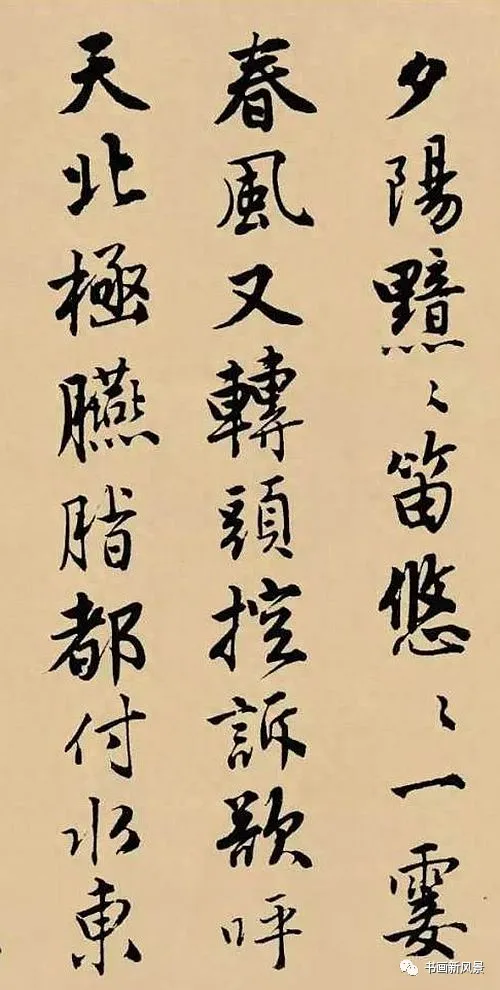 夕陽黯〻笛悠〻一霎
春風又轉頭控訴歌呼
天北極臙脂都付水東
书画新风景